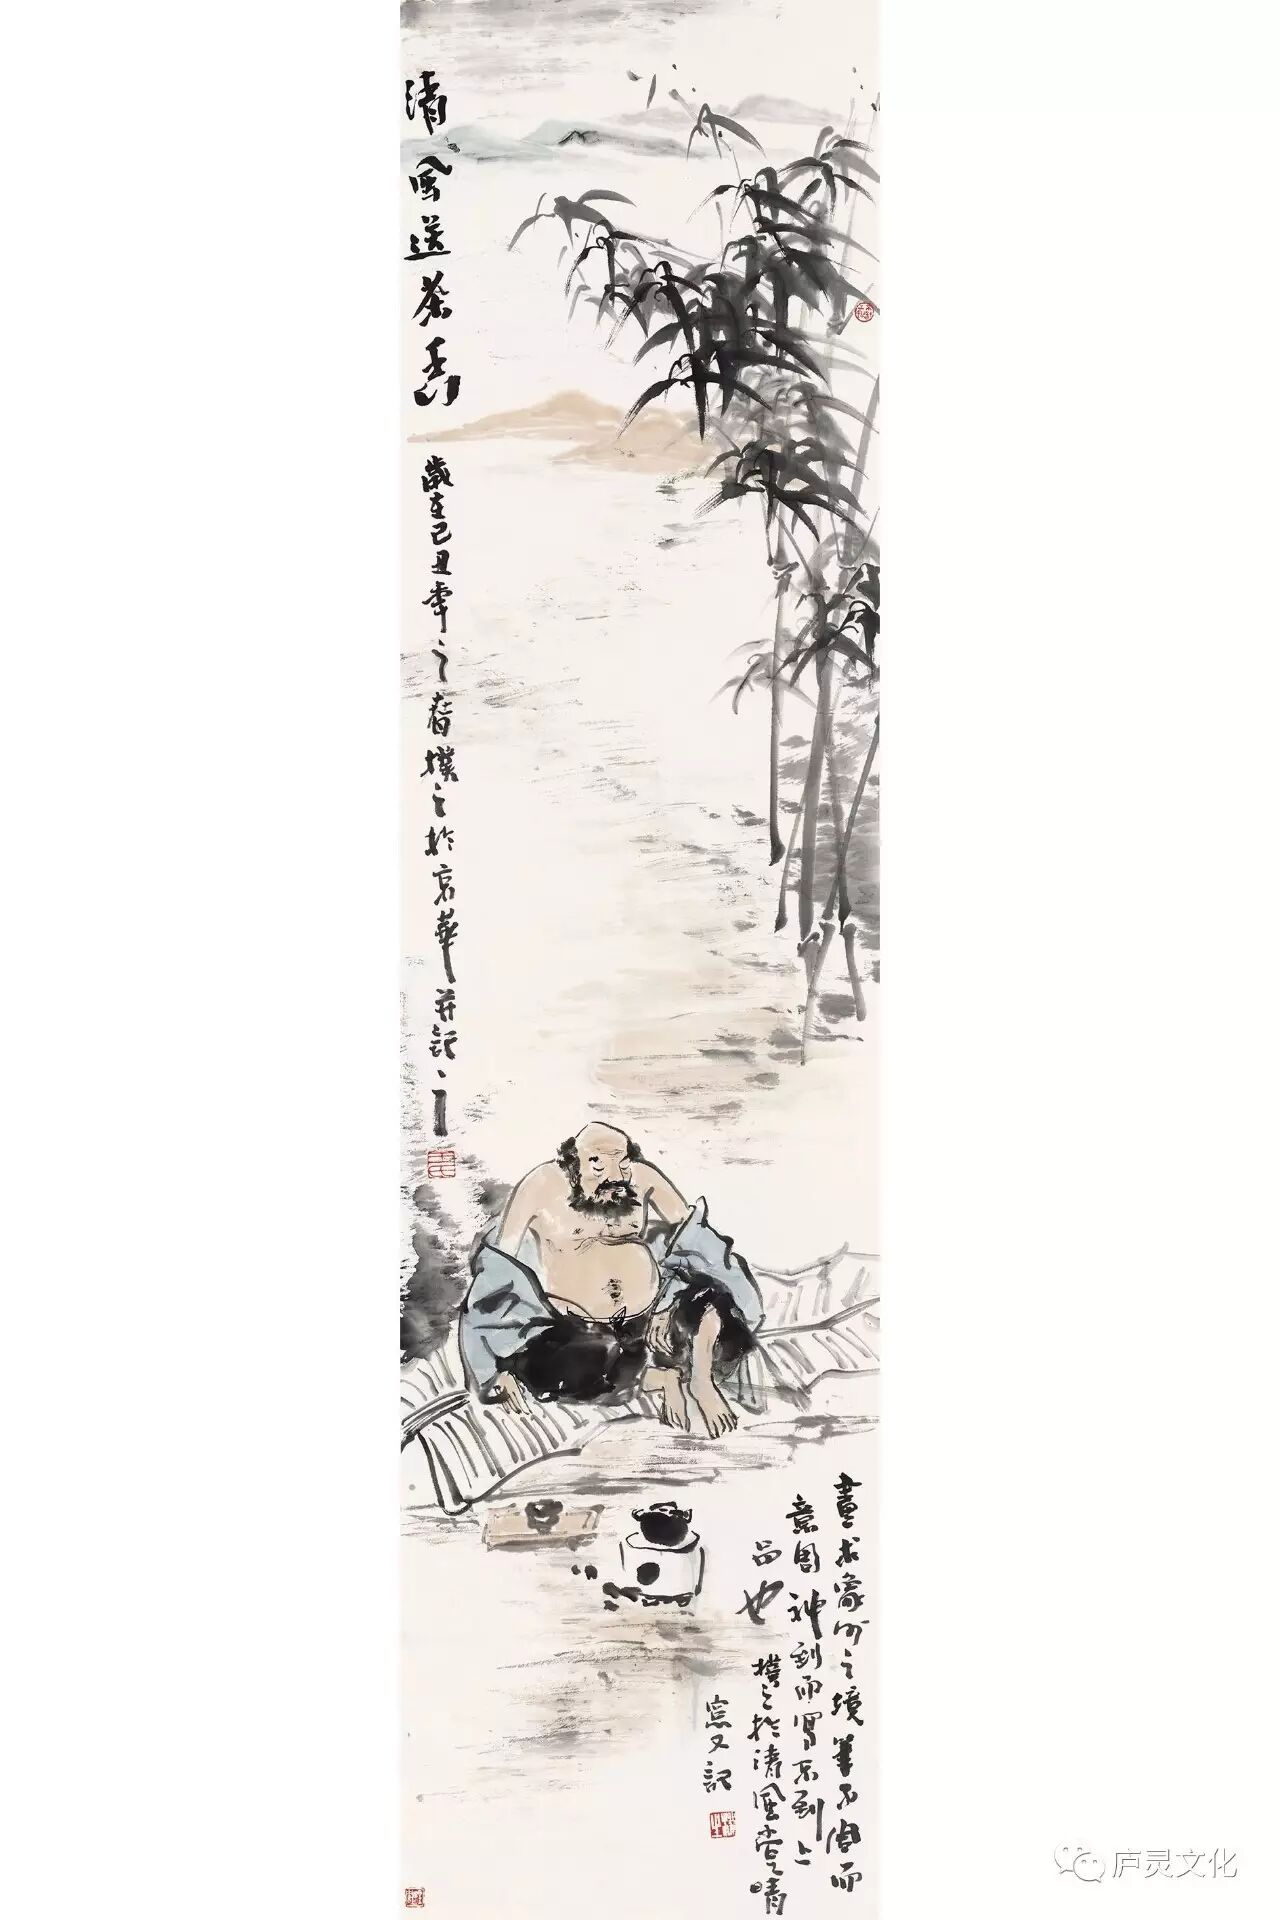 清風送茶香
歲在己丑年之春樸之於京華并記之
畫求象外之境筆不周而
意周神到而寫不到上
品也
樸之於清風堂晴
窗又記
庐灵文化